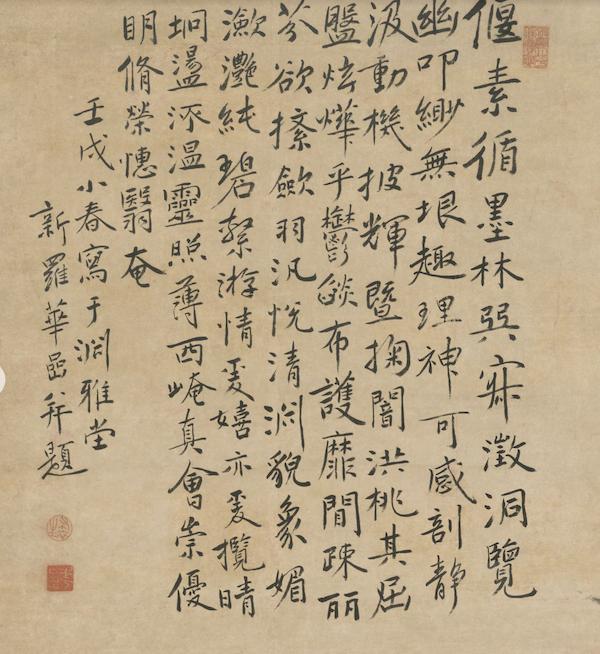 偃素循墨林巺寂澂洞覽
幽叩緲無垠趣理神可感剖靜
汲動機披輝暨掬闇洪桃其屈
盤炫燁乎鬱燄布護靡間疎丽
芬欲揉歛羽汎悅清淵貌象媚
漱灧純碧縶游情爰嬉亦爰攬晴
坰盪泝温靈照薄西崦真會崇優
明脩榮憓翳奄
壬戌小春寫于淵雅堂
新羅華嵒并題